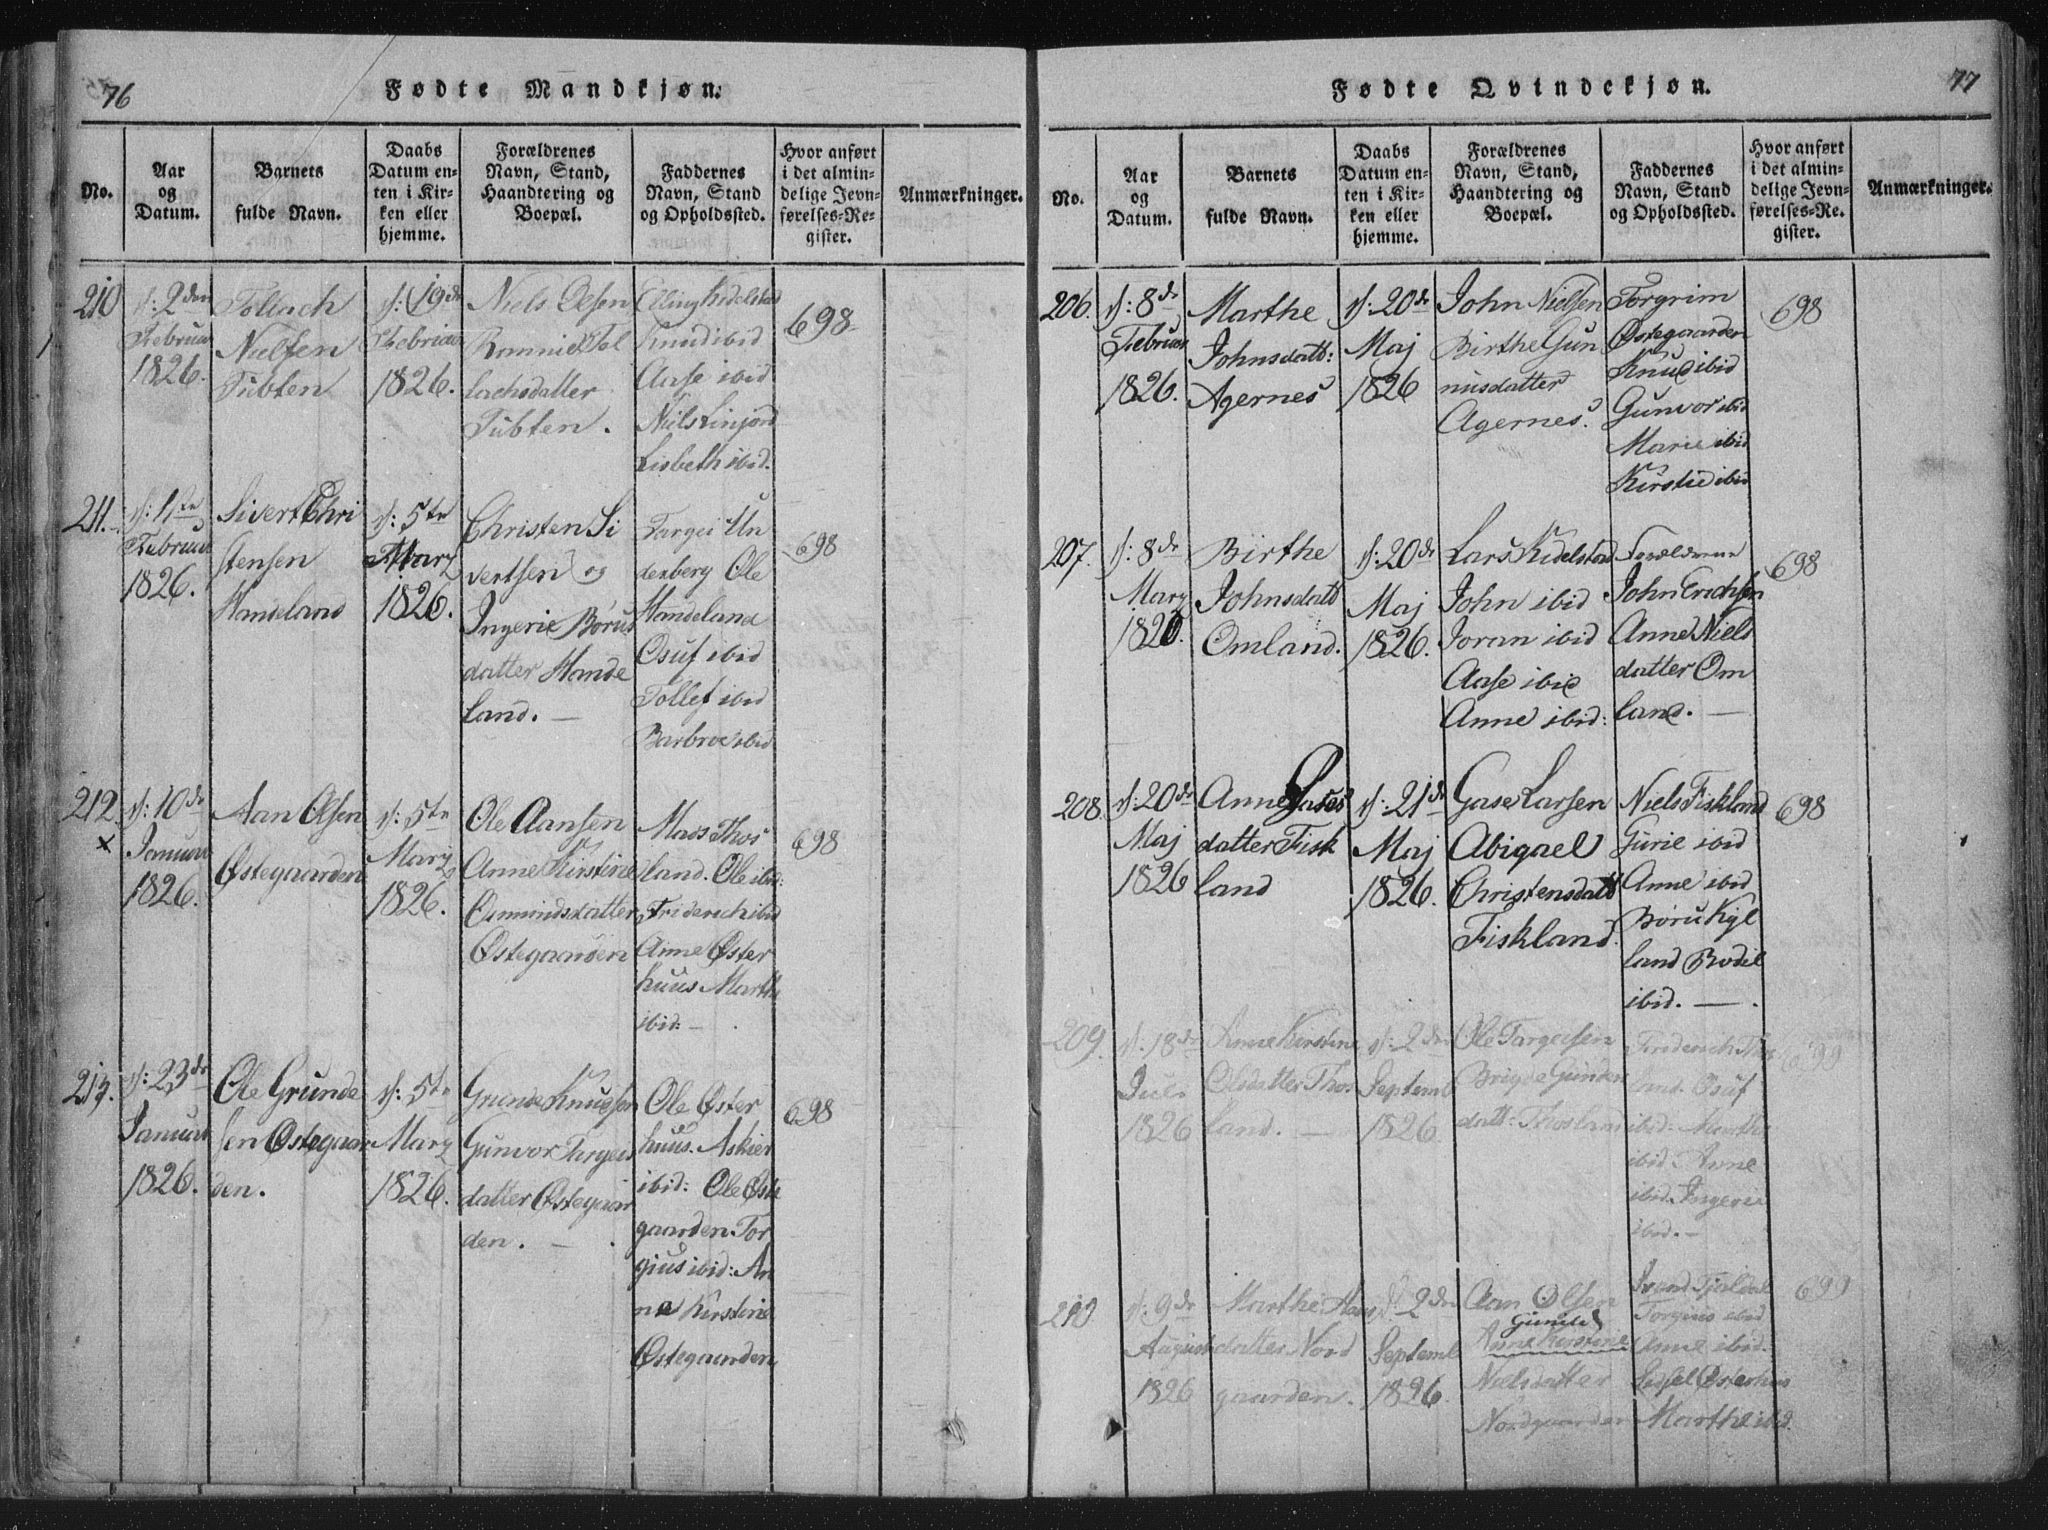 76
Fødte Mandkjøn.
No.
Aar
og
Datum.
Barnets
fulde Navn.
Daabs
Datum en-
ten i Kir-
ken eller
hjemme.
Forældrenes
Navn, Stand,
Haandtering og
Boepæl.
Faddernes
Navn, Stand
og Opholdssted.
Hvor anført
i det almin-
delige Jevn-
førelses-Re-
gister.
Anmærkninger.
210
d: 2den
Februar
1826.
Tollach
Nielsen
Tubten
d: 19de
Februar
1826.
Niels Olsen
Ronnie Tol
lachsdatter
Tubten.
Elling Kidelstad
Knud ibid
Aase ibid
Niels Linjord
Lisbeth ibid.
698
211.
d: 1ste
Februar
1826.
Sivert Chri
stensen
Handeland
d: 5te
Marz
1826.
Christen Si
vertsen og
Ingerie Børus
datter Hande
land. —
Targei Un
derberg Ole
Handeland
Osuf ibid
Tollef ibid
Barbroe ibid
698
212.
x
d: 10de
Januar
1826.
Aan Olsen
Østegaarden
d: 5te
Marz
1826.
Ole Aansen
Anne Kirstine
Osmundsdatter
Østegaarden
Mads Thos
land. Ole ibid:
Friderich ibid
Anne Øster
huus Marthe
ibid: —
698
213.
d: 23de
Januar
1826.
Ole Grunde
sen Østegaar
den.
d: 5te
Marz
1826.
Grunde Knudsen
Gunvor Targeis
datter Østegaar
den. — .
Ole Øster
huus. Askier
ibid: Ole Øste
gaarden. Tor
gius ibid: An
ne Kirstine
Østegaarden
698
77
Fødte Qvindekjøn.
No.
Aar
og
Datum.
Barnets
fulde Navn.
Daabs
Datum en-
ten i Kir-
ken eller
hjemme.
Forældrenes
Navn, Stand,
Haandtering og
Boepæl.
Faddernes
Navn, Stand
og Opholdssted.
Hvor anført
i det almin-
delige Jevn-
førelses-Re-
gister.
Anmærkninger.
206.
d: 8de
Februar
1826.
Marthe
Johnsdatt:
Agernes
d: 20de
Maj
1826
John Nielsen
Birthe Gun
nusdatter
Agernes.
Torgrim
Østegaarden
Knud ibid
Gunvor ibid
Marie ibid
Kirstie ibid
698
207.
d: 8de
Marz
1826.
Birthe
Johnsdatt
Omland.
d: 20de
Maj
1826.
Lars Kidelstad
John ibid
Joran ibid
Aase ibid
Anne ibid:
Forældrene
John Erichsen
Anne Niels
datter Om
land. —
698
208.
d: 20de
Maj
1826
Anne Gases
datter Fisk
land
d: 21de
Maj
1826.
Gase Larsen
Abigael
Christensdatt
Fiskland.
Niels Fiskland
Gurie ibid
Anne ibid
Børu Kyl
land Bodil
ibid. — .
698
209.
d. 18de
Juli
1826
Anne Kirstine
Olsdatter Thos
land. —
d: 2den
Septemb
1826.
Ole Targeisen
Brigde Gunden
datt: Thosland
Friderich Thos
land. Osuf
ibid: Marthe
ibid. Anne
ibid. Ingerie
ibid. —
699
210
d: 9de
August
1826
Marthe Aans
datter Nord
gaarden.
d: 2den
Septemb
1826.
Aan Olsen
Gunild
Anne Kirstine
Nielsdatter
Nordgaarden
Svend Fjeldal
Torgius ibid
Anne ibid.
Sidsel Østerhus
Marthe ibid.
699